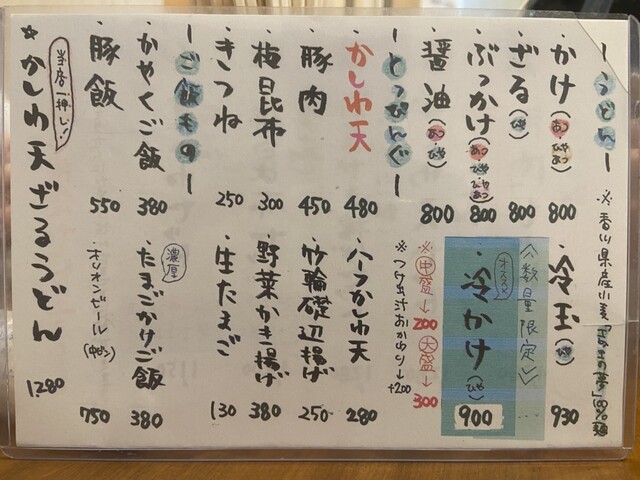 ーうどんー
※香川県産小麦「さぬきの夢」100%麺
・かけ(あつ・ひや) 800
・ざる(ひや) 800
・ぶっかけ(あつ・ひや・ひやあつ) 800
・醤油(あつ・ひや) 800
・冷玉(ひや) 930
数量限定
オススメ
・冷かけ(ひや) 900
※中盛→200 大盛→300
※つけ出汁おかわり→+200
ーとっぴんぐー
・かしわ天 480
・豚肉 450
・梅昆布 300
・きつね 250
・ハーフかしわ天 280
・竹輪磯辺揚げ 250
・野菜かき揚げ 380
・生たまご 130
ーご飯ものー
・かやくご飯 380
・豚飯 550
濃厚
・たまごかけご飯 380
・オリオンビール(中ビン) 750
当店一押し!
*かしわ天ざるうどん 1280